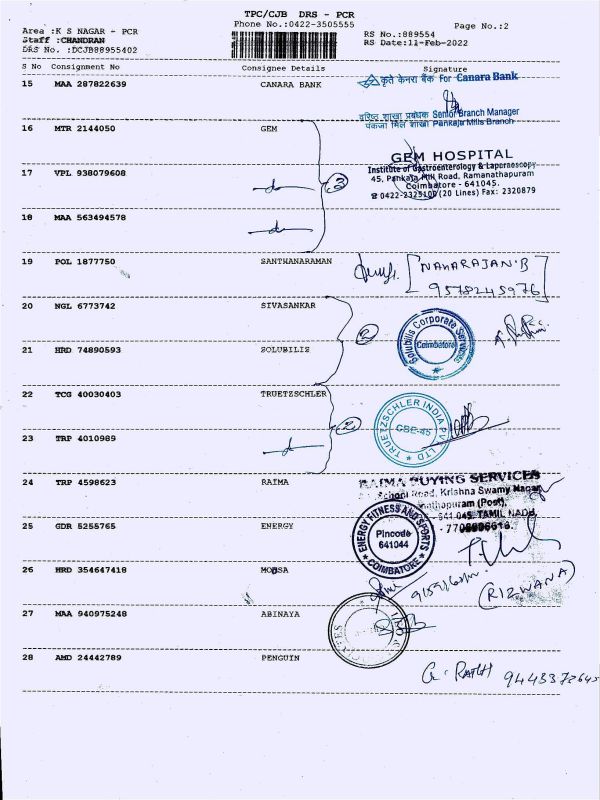 TPC/CJB DRS - PCR
Area :K S NAGAR - PCR Phone No.:0422-3505555 Page No.:2
Staff :CHANDRAN RS No.:889554
DRS No. :DCJB88955402 RS Date:11-Feb-2022
S No Consignment No Consignee Details Signature
15 MAA 287822639 CANARA BANK
कृते केनरा बैंक For Canara Bank
वरिष्ठ शाखा प्रबंधक Senior Branch Manager
पंकजा मिल शाखा Pankaja Mills Branch
16 MTR 2144050 GEM
GEM HOSPITAL
Institute of Gastroenterology & Laparoscopy
17 VPL 938079608 do 3
45, Pankaja Mill Road, Ramanathapuram
Coimbatore - 641045.
0422-2325100 (20 Lines) Fax: 2320879
18 MAA 563494578 do
19 POL 1877750 SANTHANARAMAN
[NAHARAJAN.B
9578245976]
20 NGL 6773742 SIVASANKAR 2
Solubilis Corporate Services
Coimbatore
21 HRD 74890593 SOLUBILIZ
22 TCG 40030403 TRUETZSCHLER 2
TRUETZSCHLER INDIA PVT LTD
CBE-45
23 TRP 4010989 do
24 TRP 4598623 RAIMA
RAIMA BUYING SERVICES
Road, Krishna Swamy Nagar,
(Post),
641 045, TAMIL NADU,
25 GDR 5255765 ENERGY
ENERGY FITNESS AND SPORTS
Pincode
641044
COIMBATORE
26 HRD 354647418 MOOSA
(RIZWANA)
27 MAA 940975248 ABINAYA
28 AMD 24442789 PENGUIN
9443372645